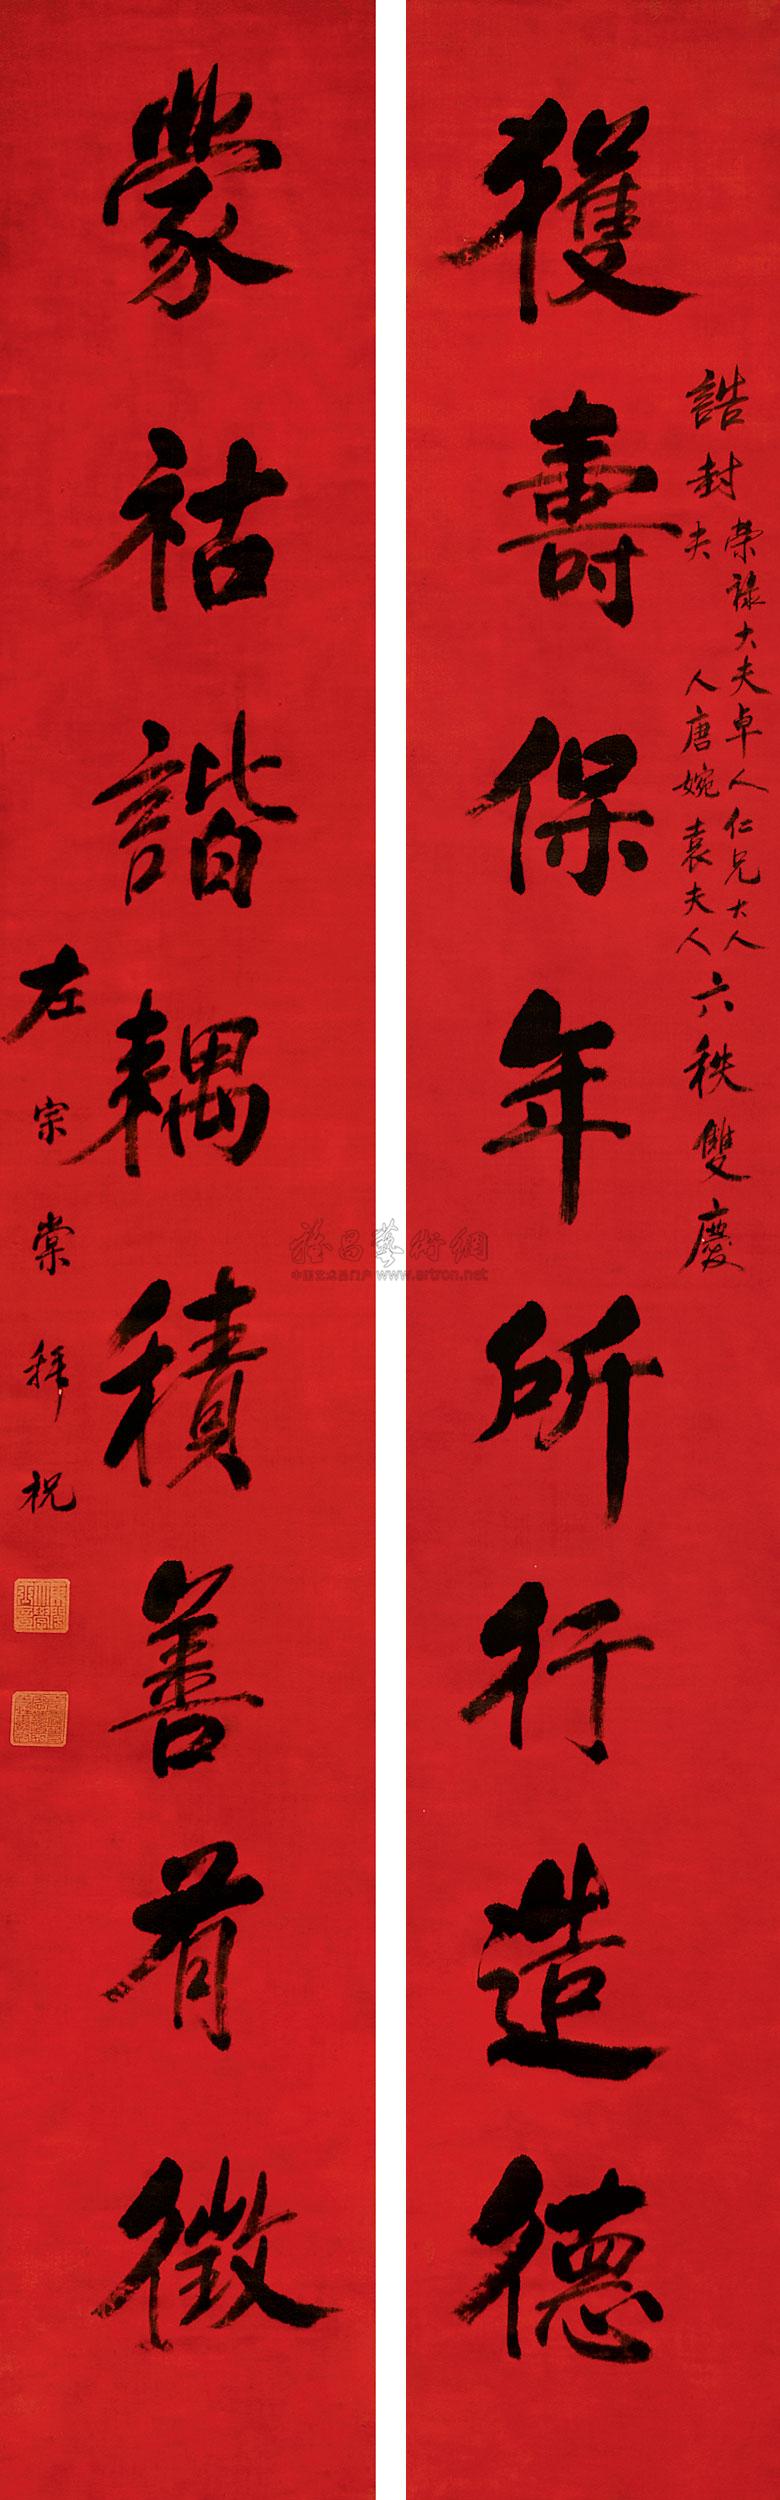 獲壽保年所行造德
誥封
榮祿大夫卓人仁兄大人
夫人唐婉袁夫人
六秩雙慶
蒙祜諧耦積善有徵
左宗棠拜祝
雅昌藝術網
中国艺术品门户 www.artron.net